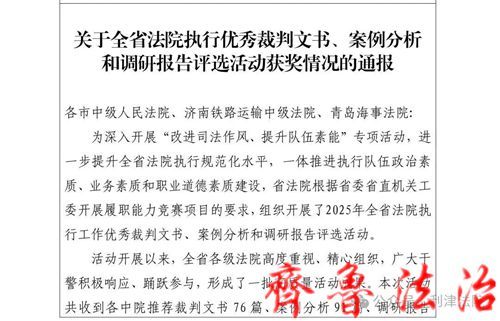 关于全省法院执行优秀裁判文书、案例分析
和调研报告评选活动获奖情况的通报
各市中级人民法院、济南铁路运输中级法院、青岛海事法院：
为深入开展“改进司法作风、提升队伍素能”专项活动，进
一步提升全省法院执行规范化水平，一体推进执行队伍政治素
质、业务素质和职业道德素质建设，省法院根据省委省直机关工
委开展履职能力竞赛项目的要求，组织开展了2025年全省法院执
行工作优秀裁判文书、案例分析和调研报告评选活动。
活动开展以来，全省各级法院高度重视、精心组织，广大干
警积极响应、踊跃参与，形成了一批 质量活动成果。本次活动
共收到各中院推荐裁判文书76篇、案例分析9 篇、调研报告
齐鲁法治
公众号 利津法院